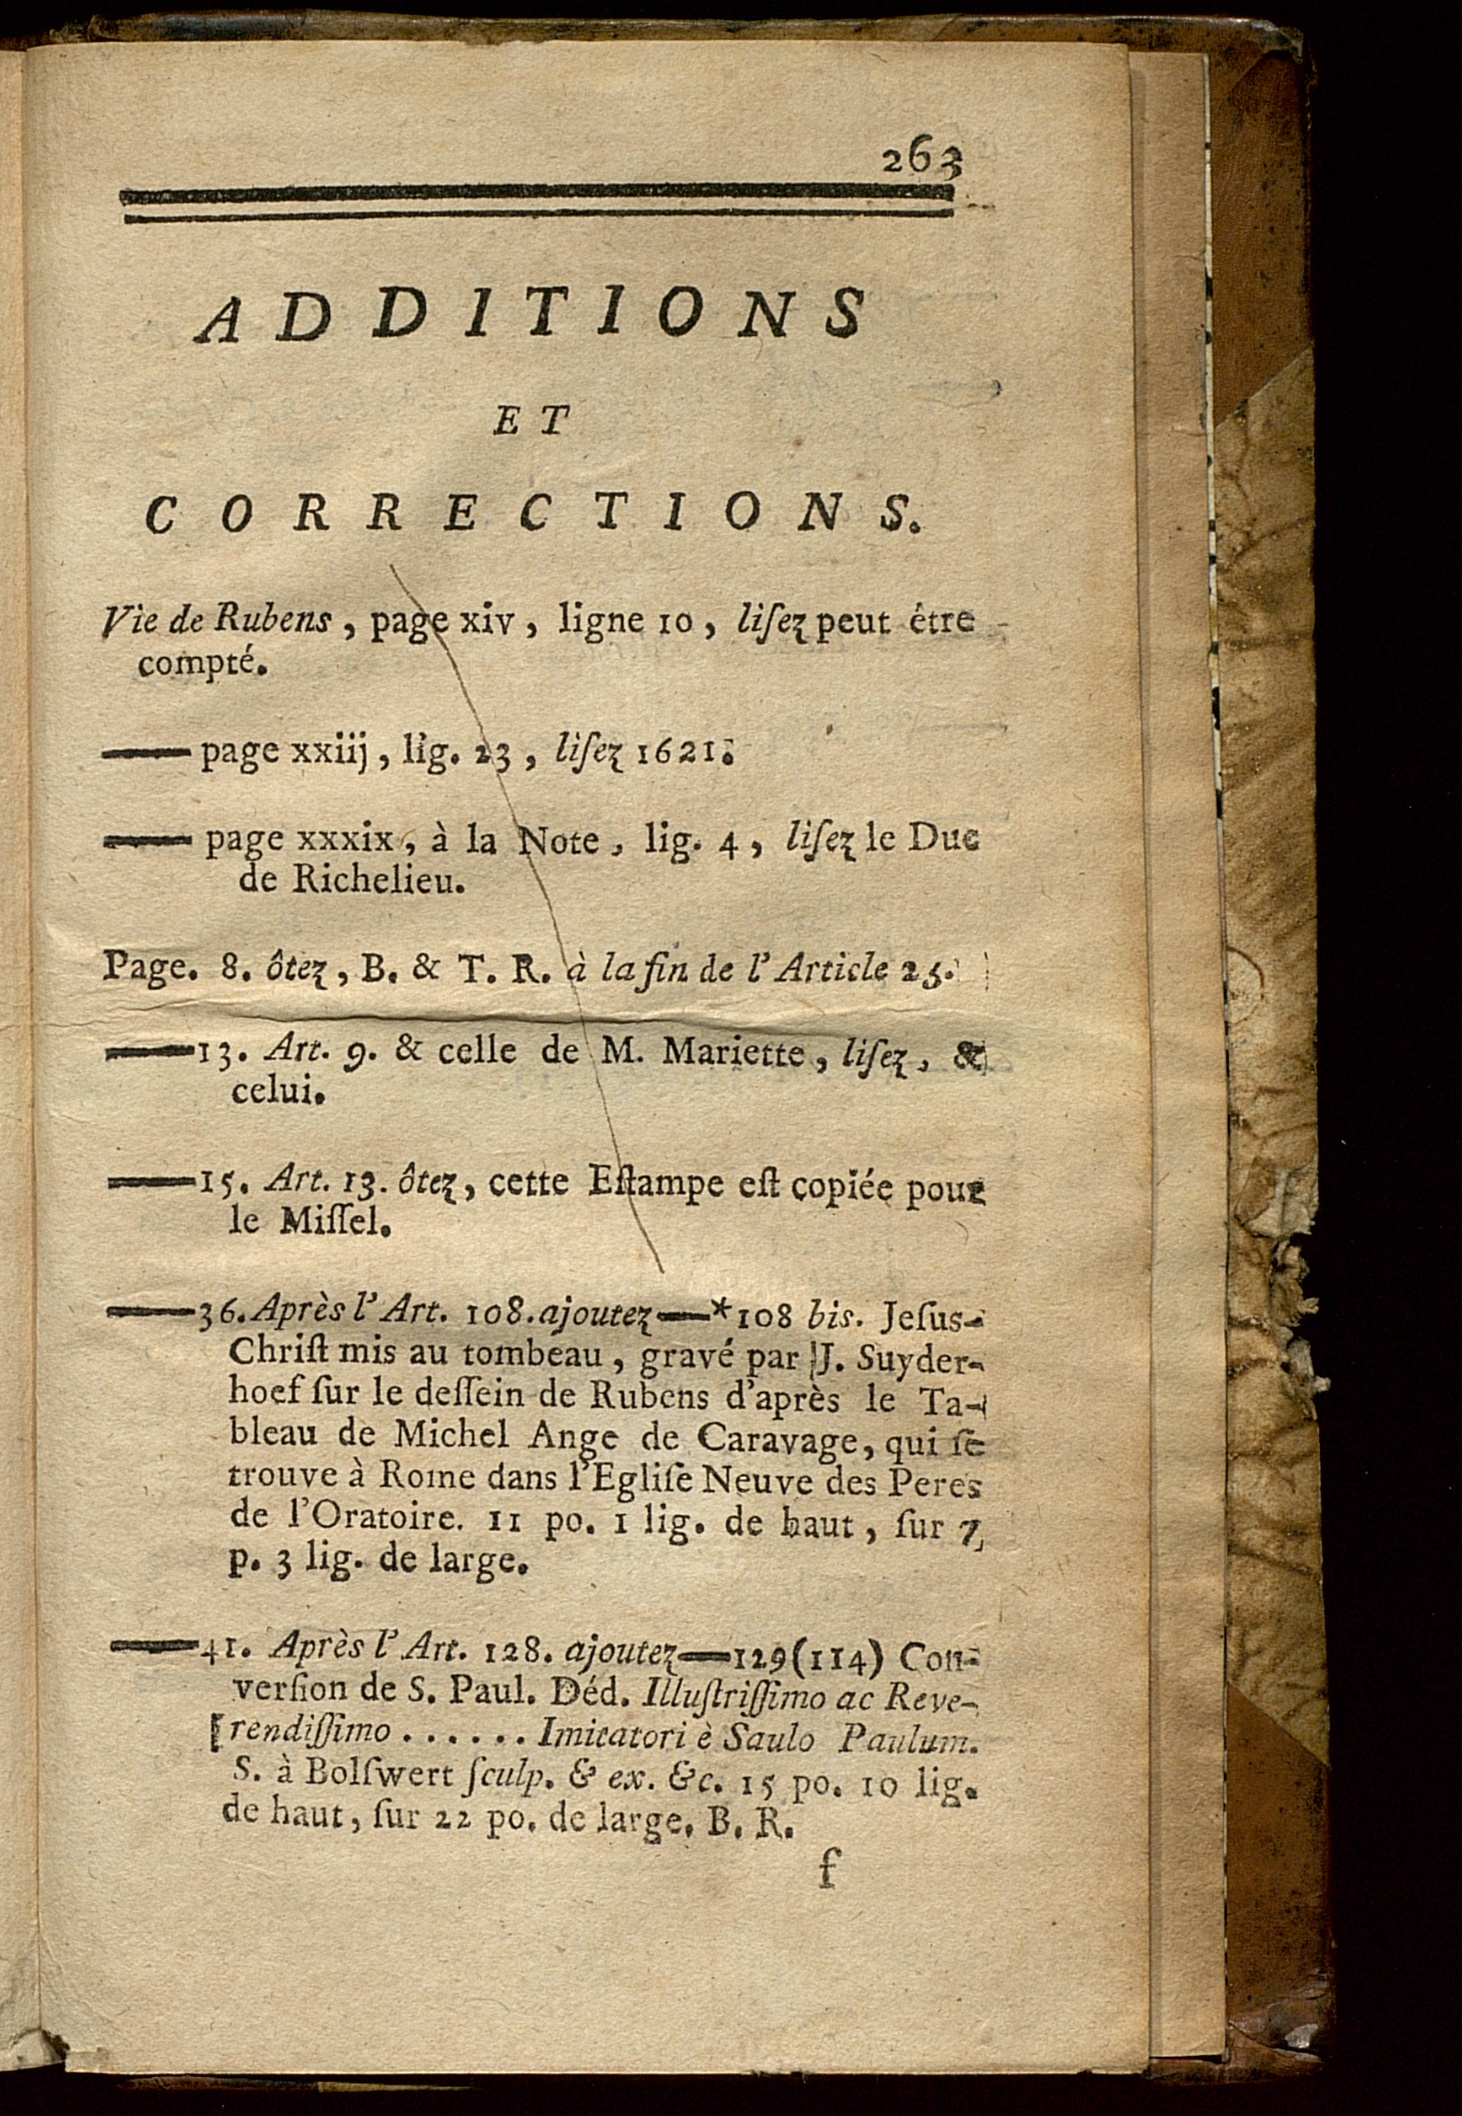 263
ADDITIONS
ET
CORRECTIONS.
Vie de Rubens, page xiv, ligne 10, liſez peut être
compté.
—— page xxiij, lig. 23, liſez 1621.
—— page xxxix, à la Note, lig. 4, liſez le Duc
de Richelieu.
Page. 8. ôtez, B. & T. R. à la fin de l'Article 25.
——13. Art. 9. & celle de M. Mariette, liſez, &
celui.
——15. Art. 13. ôtez, cette Eſtampe eſt copiée pour
le Miſſel.
——36. Après l'Art. 108. ajoutez—*108 bis. Jeſus-
Chriſt mis au tombeau, gravé par J. Suyder-
hoef ſur le deſſein de Rubens d'après le Ta-
bleau de Michel Ange de Caravage, qui ſe
trouve à Rome dans l'Egliſe Neuve des Peres
de l'Oratoire. 11 po. 1 lig. de haut, ſur 7
p. 3 lig. de large.
——41. Après l'Art. 128. ajoutez—129 (114) Con-
verſion de S. Paul. Déd. Illuſtriſſimo ac Reve-
rendiſſimo...... Imitatori è Saulo Paulum.
S. à Bolſwert ſculp. & ex. &c. 15 po. 10 lig.
de haut, ſur 22 po. de large. B. R.
f